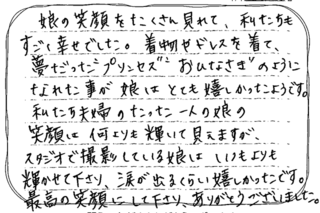 娘の笑顔をたくさん見れて、私たちも
すごく幸せでした。着物やドレスを着て、
夢だった"プリンセス""おひなさま"のように
なれた事が娘はとても嬉しかったようです。
私たち夫婦のたった一人の娘の
笑顔は何よりも輝いて見えますが、
スタジオで撮影している娘はいつもよりも
輝かせて下さり、涙が出るくらい嬉しかったです。
最高の笑顔にして下さり、ありがとうございました。